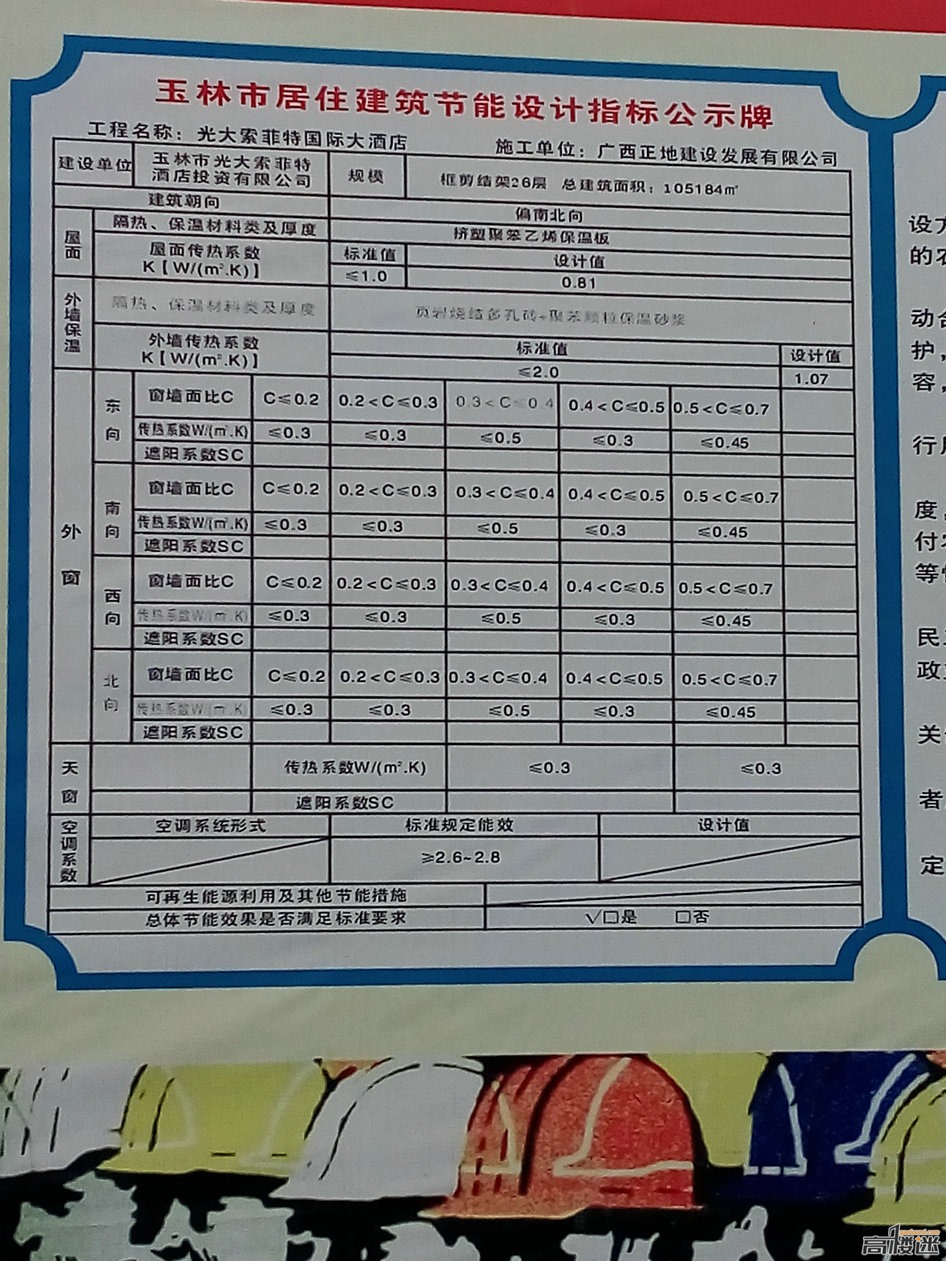 玉林市居住建筑节能设计指标公示牌
工程名称：光大索菲特国际大酒店 施工单位：广西正地建设发展有限公司
建设单位 玉林市光大索菲特酒店投资有限公司 规模 框剪结架26层 总建筑面积：105184㎡
建筑朝向 偏南北向
屋面 隔热、保温材料类及厚度 挤塑聚苯乙烯保温板
屋面传热系数 K【W/(㎡.K)】 标准值 设计值
≤1.0 0.81
外墙保温 隔热、保温材料类及厚度 页岩烧结多孔砖+聚苯颗粒保温砂浆
外墙传热系数 K【W/(㎡.K)】 标准值 设计值
≤2.0 1.07
外窗
东向 窗墙面比C C≤0.2 0.2<C≤0.3 0.3<C≤0.4 0.4<C≤0.5 0.5<C≤0.7
传热系数W/(㎡.K) ≤0.3 ≤0.3 ≤0.5 ≤0.3 ≤0.45
遮阳系数SC
南向 窗墙面比C C≤0.2 0.2<C≤0.3 0.3<C≤0.4 0.4<C≤0.5 0.5<C≤0.7
传热系数W/(㎡.K) ≤0.3 ≤0.3 ≤0.5 ≤0.3 ≤0.45
遮阳系数SC
西向 窗墙面比C C≤0.2 0.2<C≤0.3 0.3<C≤0.4 0.4<C≤0.5 0.5<C≤0.7
传热系数W/(㎡.K) ≤0.3 ≤0.3 ≤0.5 ≤0.3 ≤0.45
遮阳系数SC
北向 窗墙面比C C≤0.2 0.2<C≤0.3 0.3<C≤0.4 0.4<C≤0.5 0.5<C≤0.7
传热系数W/(㎡.K) ≤0.3 ≤0.3 ≤0.5 ≤0.3 ≤0.45
遮阳系数SC
天窗 传热系数W/(㎡.K) ≤0.3 ≤0.3
遮阳系数SC
空调系数 空调系统形式 标准规定能效 设计值
≥2.6~2.8
可再生能源利用及其他节能措施
总体节能效果是否满足标准要求 √□是 □否
设
的
动
护，
容，
行
度
付
等
民
政
关
者
定
高楼迷